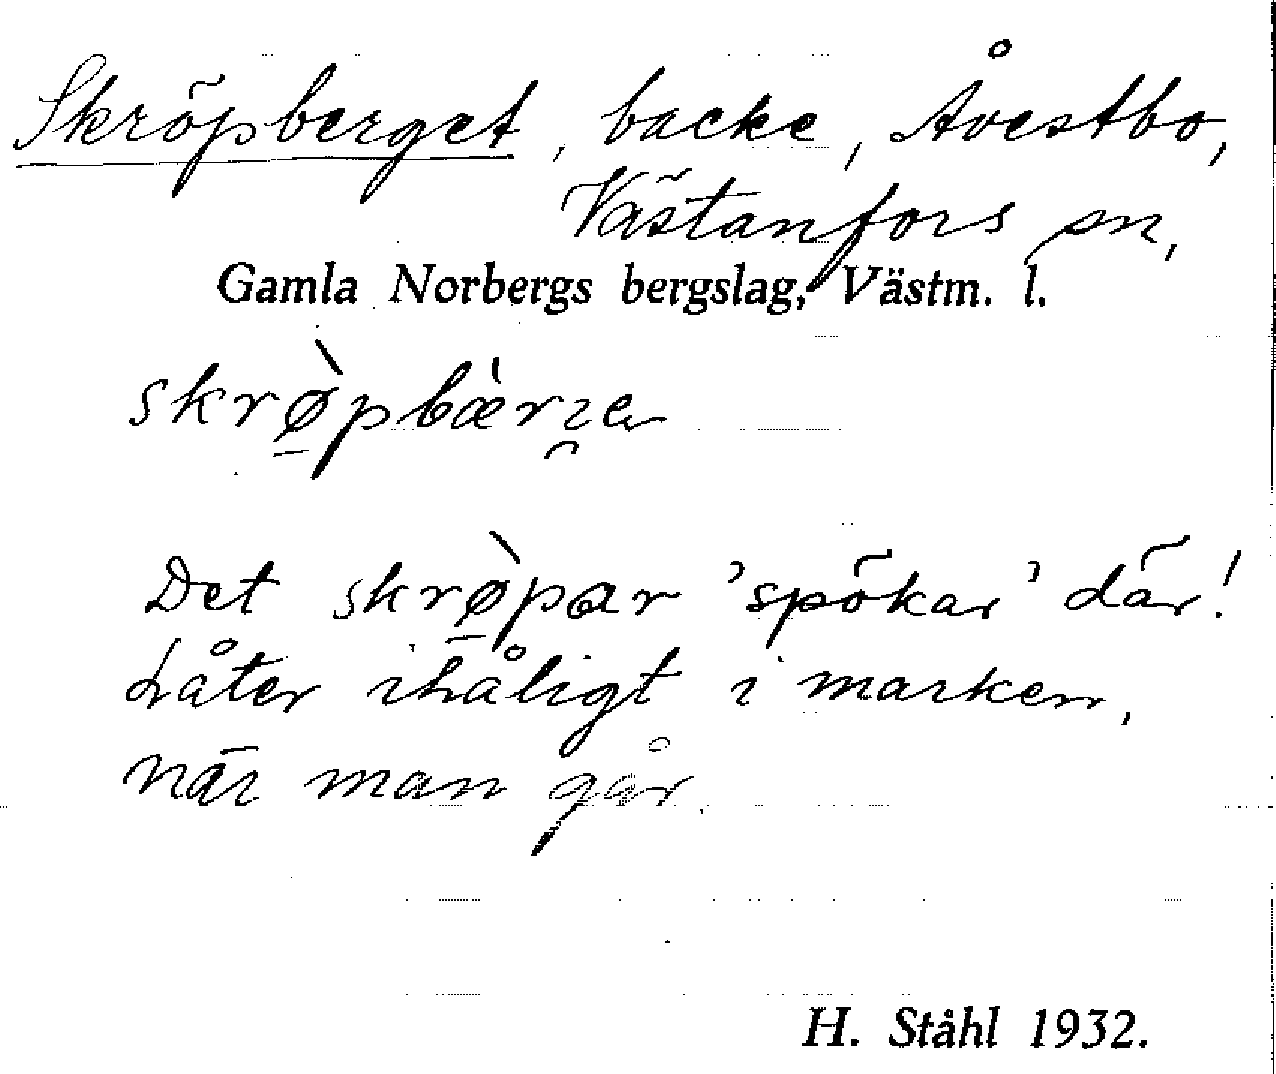 Skröpberget, backe, Åvestbo,
Västanfors sn,
Gamla Norbergs bergslag, Västm. l.
skrø̠̀pbæ̀rɿ̯a
Det skrø̠̀par 'spökar' där!
Låter ihåligt i marken,
när man går.
H. Ståhl 1932.